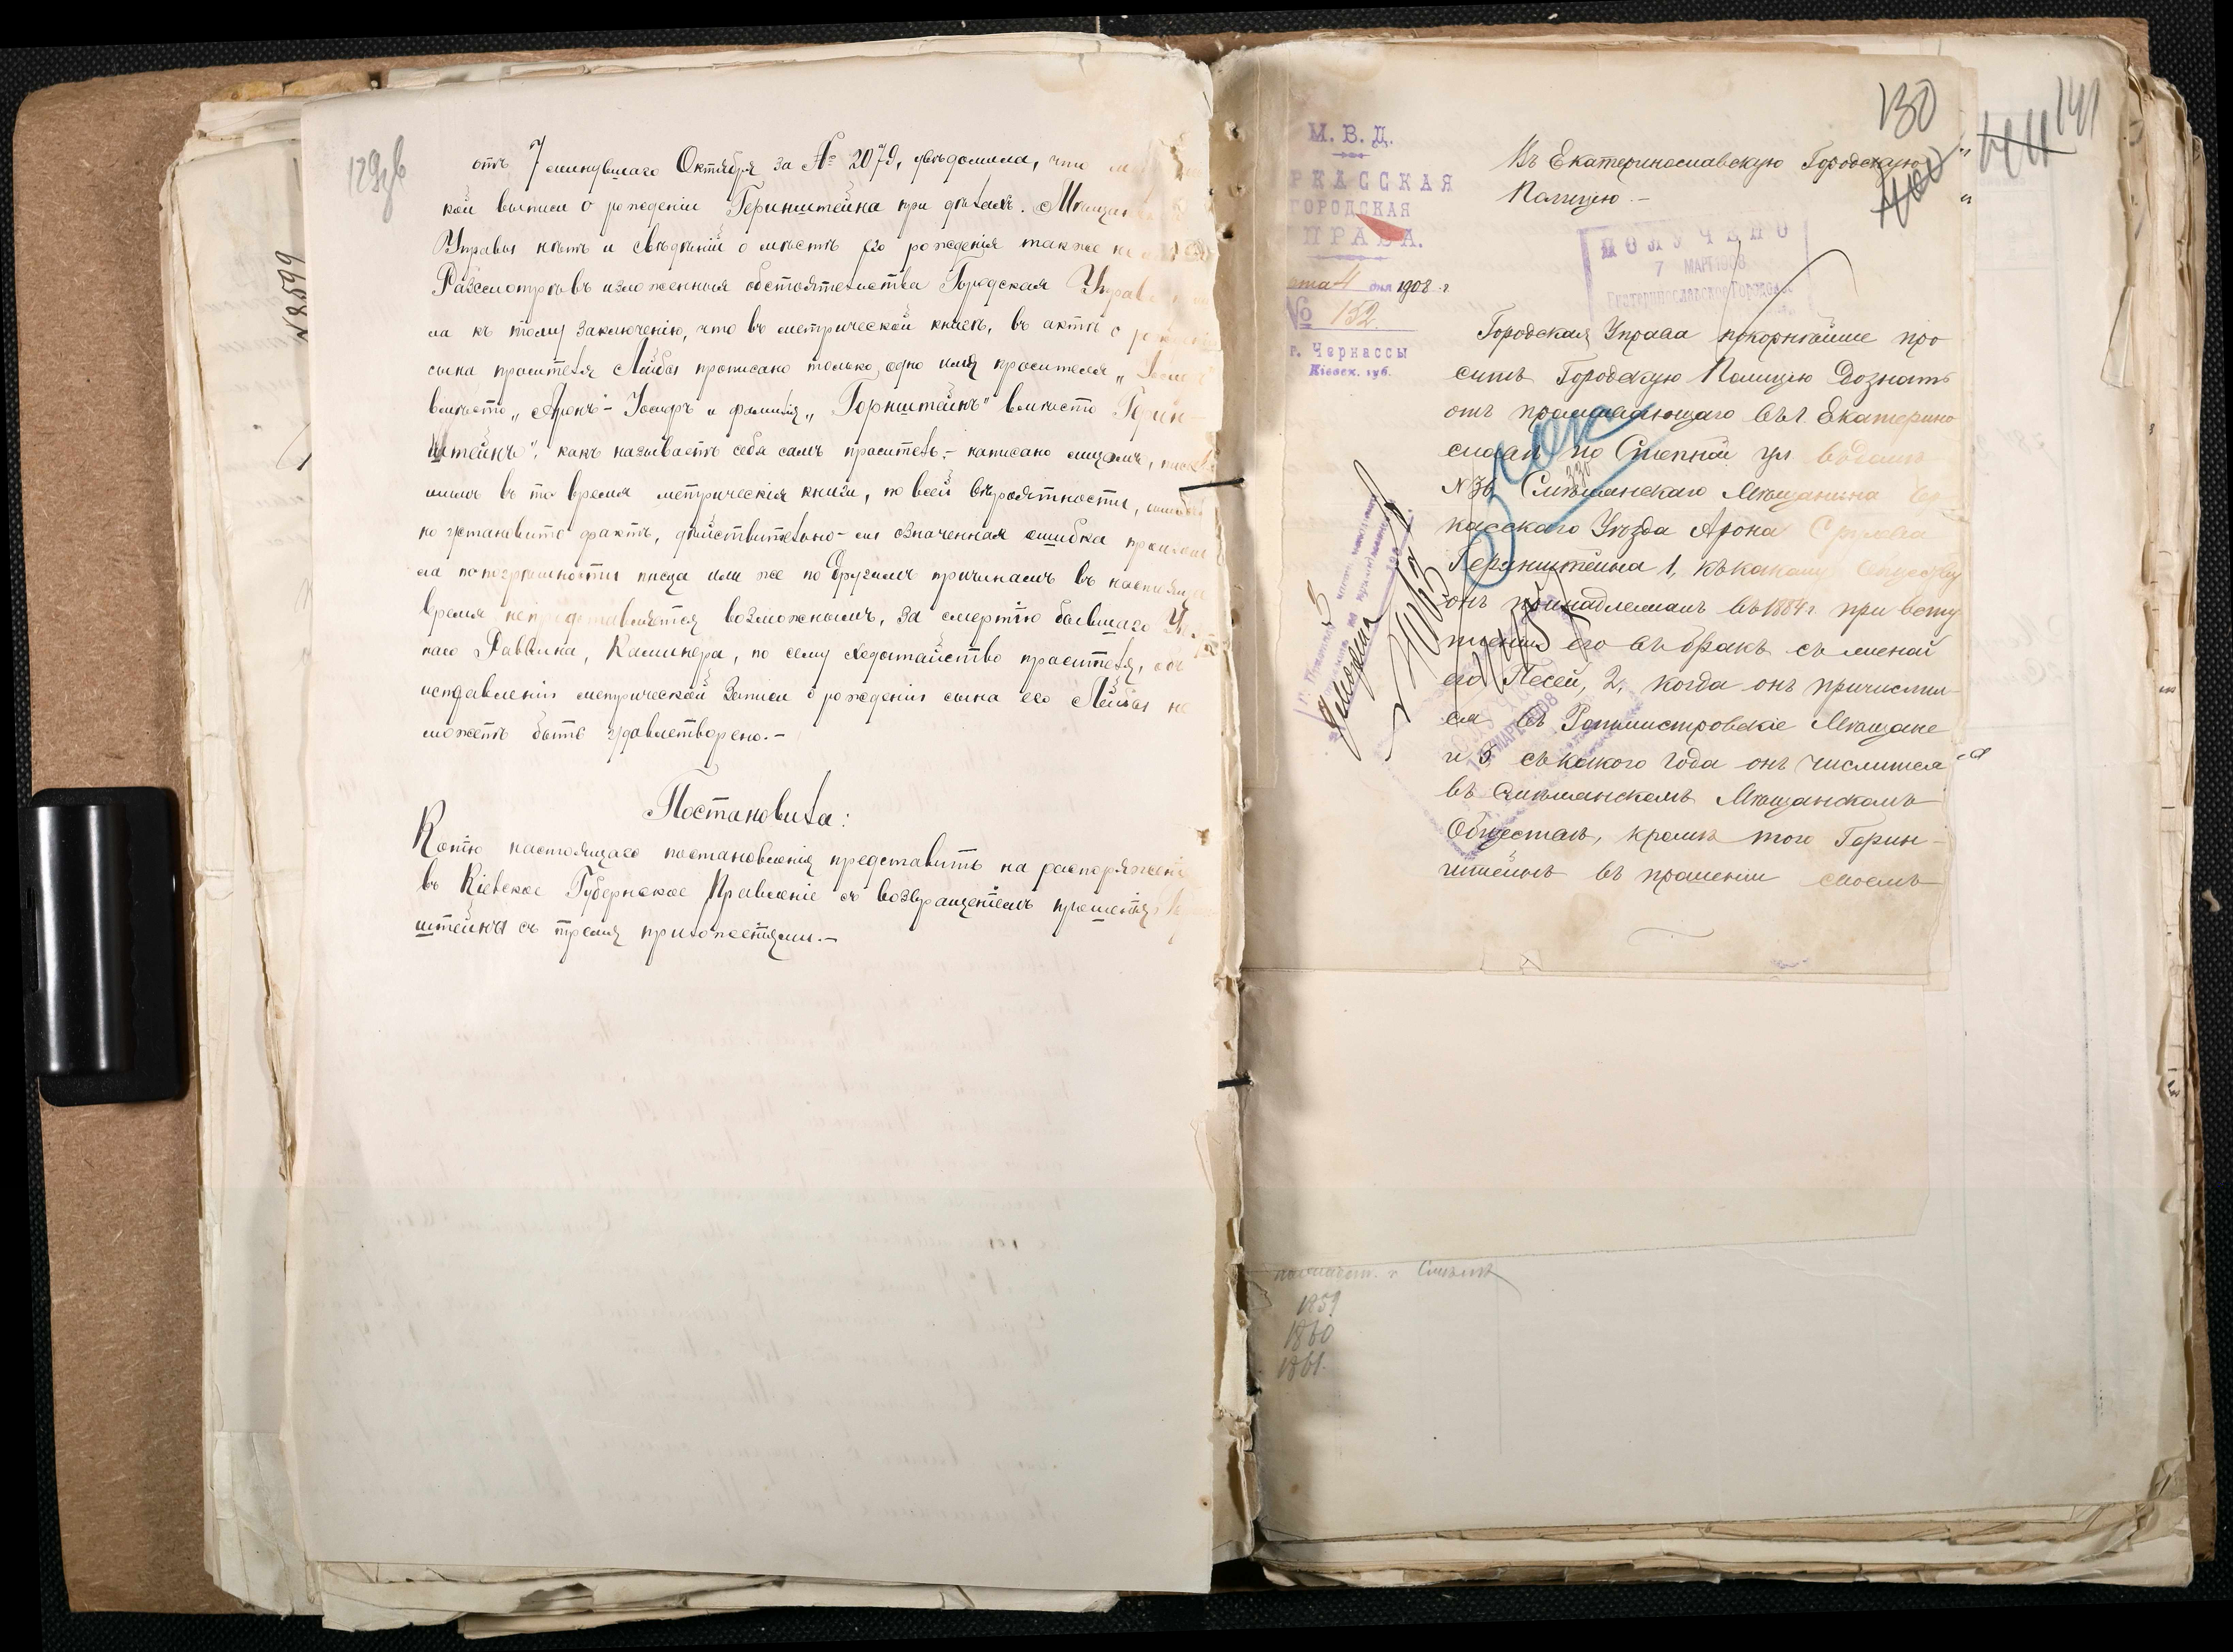 129об
отъ 7 минувшаго Октября за № 2079, увѣдомила, что
кой выписи о рожденіи Геринштейна при дѣлахъ. Мѣщан
Управы нѣтъ и свѣдѣній о мѣстѣ его рожденія также не
Разсмотрѣвъ изложенныя обстоятельства Городская Управа
ла къ тому заключенію, что въ метрической книгѣ, въ актѣ о
сына просителя Лейбы прописано только одно имя просителя „
вмѣсто „Аронъ-Іосифъ и фамилія „Горнштейнъ" вмѣсто Герин-
штейнъ", какъ называетъ себя самъ проситель,- написано лицомъ,
шимъ въ то время метрическія книги, по всей вѣроятности,
но установить фактъ, дѣйствительно-ли означенная ошибка
ла по погрѣшности писца или же по другимъ причинамъ въ настоящее
время непредставляется возможнымъ, за смертію бывшаго
наго Раввина, Каминера, по сему ходатайство просителя, объ
исправленіи метрической записи о рожденіи сына его Лейбы не
можетъ быть удовлетворено.-
Постановила:
Копію настоящаго постановленія представить на распоряженіе
въ Кіевское Губернское Правленіе съ возвращеніемъ прошенія
штейна съ тремя приложеніями.-
№ 8599
130
141
М. В. Д.
РКАССКАЯ
ГОРОДСКАЯ
ПРАВА.
рта 4 дня 1908 г.
№ 152.
г. Черкассы
Кіевск. губ.
Въ Екатеринославскую Городскую
Полицію.-
ПОЛУЧЕНО
7 МАР 1908
Екатеринославское Городское
Городская Управа покорнѣйше про
ситъ Городскую Полицію Дознать
отъ проживающаго въ г. Екатерино
славѣ по Степной ул. въ домѣ
№ 36 Смѣлянскаго Мѣщанина Чер-
касскаго Уѣзда Арона Срулева
Геринштейна 1, къ какому Обществу
онъ принадлежалъ въ 1884 г. при всту
пленіи его въ бракъ съ женой
его Песей, 2, когда онъ причислил-
ся въ Ротмистровскіе Мѣщане
и 3, съ какого года онъ числится
въ Смѣлянскомъ Мѣщанскомъ
Обществѣ, кромѣ того Герин-
штейнъ въ прошеніи своемъ
МАРТ 1908
1859
1860
1861.